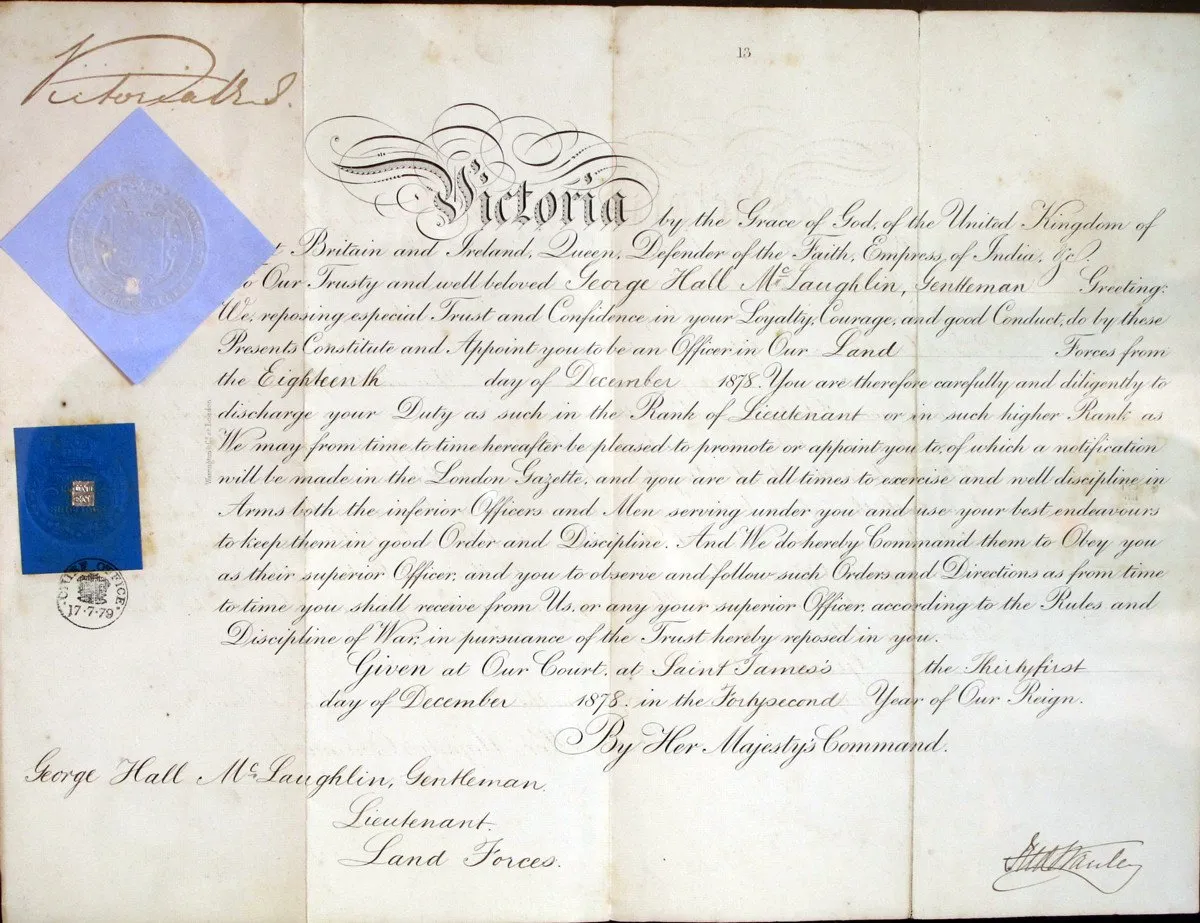 13
Victoria R I
Victoria by the Grace of God, of the United Kingdom of
Britain and Ireland, Queen, Defender of the Faith, Empress of India, &c.
Our Trusty and well beloved George Hall McLaughlin, Gentleman Greeting:
We, reposing especial Trust and Confidence in your Loyalty, Courage, and good Conduct, do by these
Presents Constitute and Appoint you to be an Officer in Our Land Forces from
the Eighteenth day of December 1878. You are therefore carefully and diligently to
discharge your Duty as such in the Rank of Lieutenant or in such higher Rank as
We may from time to time hereafter be pleased to promote or appoint you to, of which a notification
will be made in the London Gazette, and you are at all times to exercise and well discipline in
Arms both the inferior Officers and Men serving under you and use your best endeavours
to keep them in good Order and Discipline. And We do hereby Command them to Obey you
as their superior Officer, and you to observe and follow such Orders and Directions as from time
to time you shall receive from Us, or any your superior Officer, according to the Rules and
Discipline of War, in pursuance of the Trust hereby reposed in you.
Given at Our Court, at Saint James's the Thirtyfirst
day of December 1878. in the Fortysecond Year of Our Reign.
By Her Majesty's Command.
OFFICE
17·7·79
George Hall McLaughlin, Gentleman.
Lieutenant.
Land Forces.
Stanley